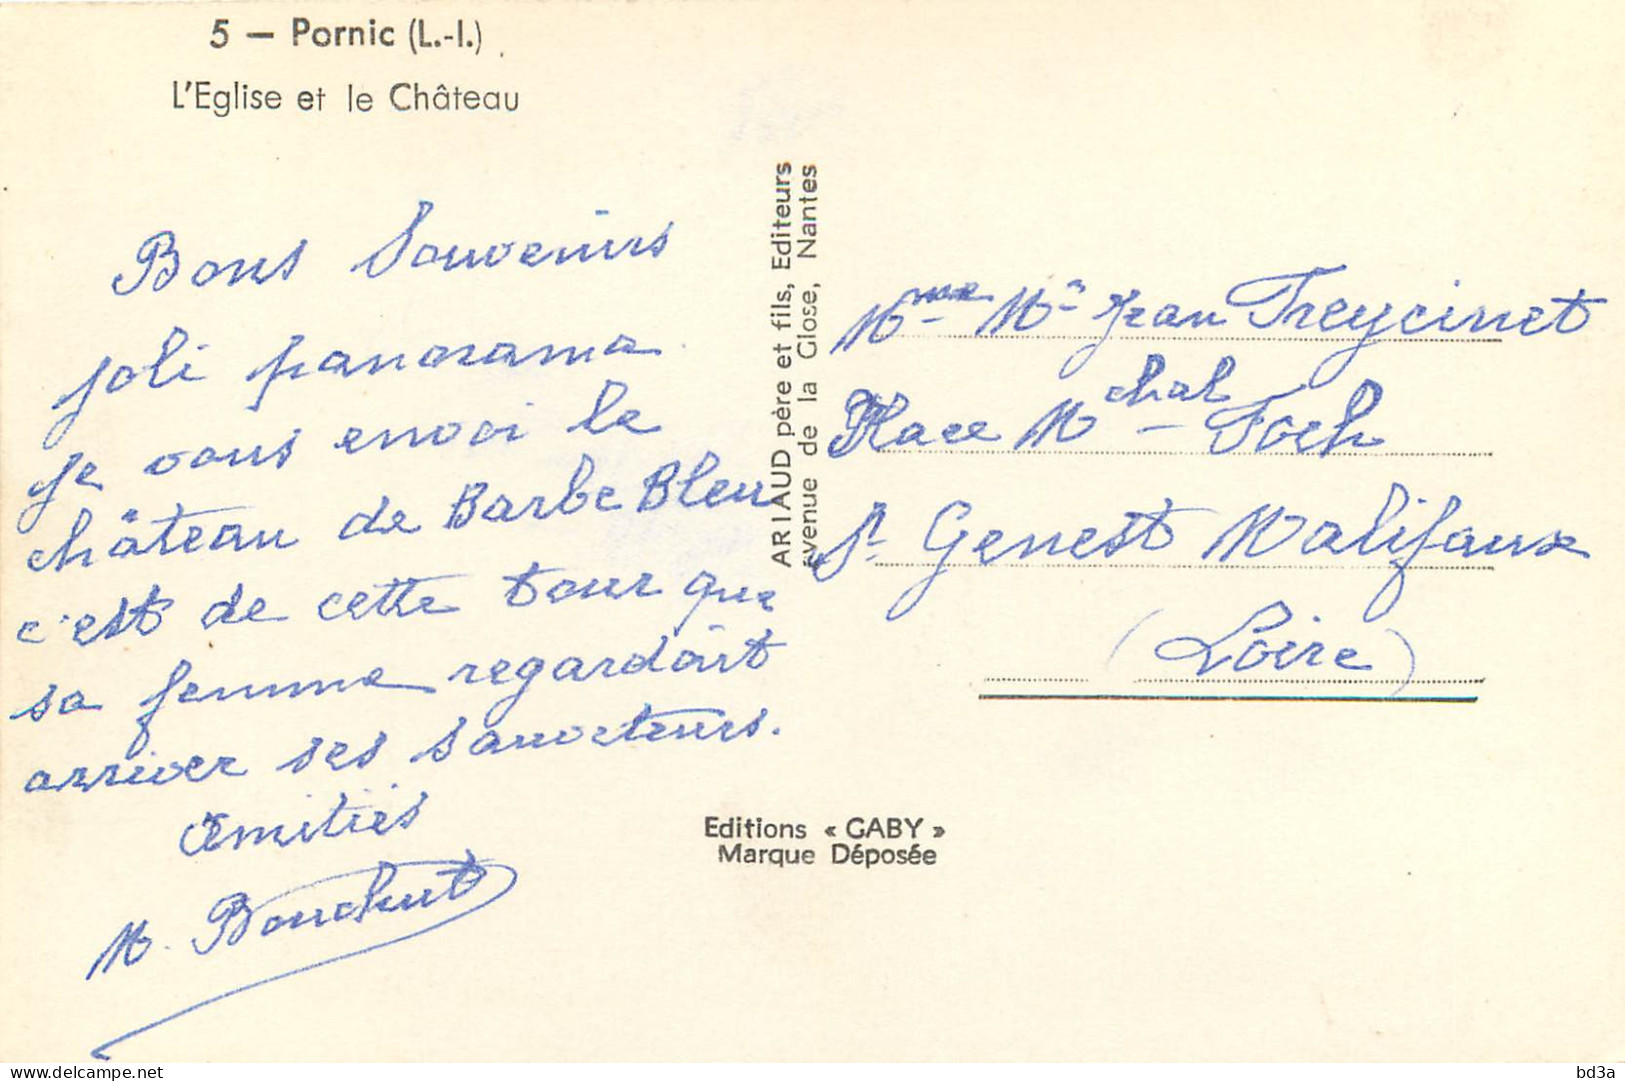 5 — Pornic (L.-I.)
L'Eglise et le Château
Bons Souvenirs
joli panorama
je vous envoi le
château de Barbe Bleu
c'est de cette tour que
sa femme regardait
arriver ses sauveteurs.
Amitiés
M. Bouchut
ARIAUD père et fils, Editeurs
avenue de la Close, Nantes
Editions « GABY »
Marque Déposée
Mme Mr Jean Freycinet
Place Mchal Foch
St Genest Malifaux
(Loire)
www.delcampe.net
bd3a